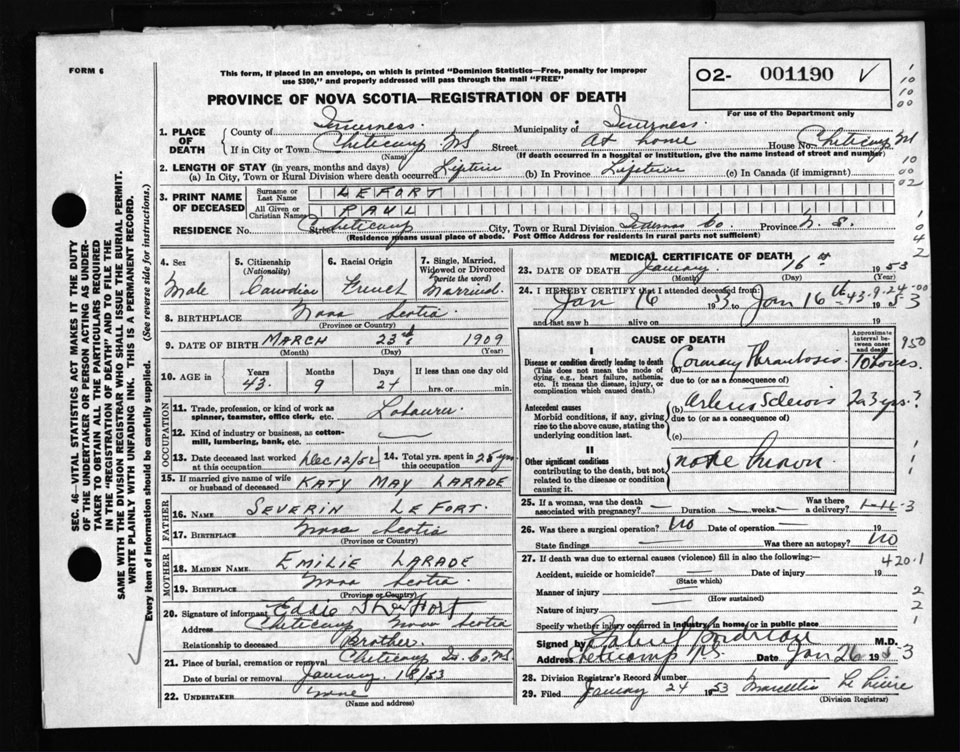 FORM 6
This form, if placed in an envelope, on which is printed "Dominion Statistics—Free, penalty for improper
use $300," and properly addressed will pass through the mail "FREE"
O2- 001190 V
PROVINCE OF NOVA SCOTIA—REGISTRATION OF DEATH
For use of the Department only
1. PLACE OF DEATH
County of Inverness Municipality of Inverness
If in City or Town Cheticamp NS Street At home House No. Cheticamp NS
(Name) (If death occurred in a hospital or institution, give the name instead of street and number)
2. LENGTH OF STAY (in years, months and days)
(a) In City, Town or Rural Division where death occurred Lifetime (b) In Province Lifetime (c) In Canada (if immigrant)
3. PRINT NAME OF DECEASED
Surname or Last Name LEFORT
All Given or Christian Names PAUL
RESIDENCE No. Street Cheticamp City, Town or Rural Division Inverness Co. Province N. S.
(Residence means usual place of abode. Post Office Address for residents in rural parts not sufficient)
4. Sex Male
5. Citizenship (Nationality) Canadian
6. Racial Origin French
7. Single, Married, Widowed or Divorced (write the word) Married.
8. BIRTHPLACE Nova Scotia
(Province or Country)
9. DATE OF BIRTH MARCH 23rd 1909
(Month) (Day) (Year)
10. AGE in Years 43 Months 9 Days 24 If less than one day old hrs. or min.
OCCUPATION
11. Trade, profession, or kind of work as spinner, teamster, office clerk, etc.
12. Kind of industry or business, as cotton-mill, lumbering, bank, etc. —
13. Date deceased last worked at this occupation Dec 12/52 14. Total yrs. spent in this occupation 25 yrs.
15. If married give name of wife or husband of deceased KATY MAY LARADE
FATHER
16. NAME SEVERIN LE FORT.
17. BIRTHPLACE Nova Scotia
(Province or Country)
MOTHER
18. MAIDEN NAME EMILIE LARADE
19. BIRTHPLACE Nova Scotia.
(Province or Country)
20. Signature of informant Eddie LeFort
Address Cheticamp Nova Scotia
Relationship to deceased Brother.
21. Place of burial, cremation or removal Cheticamp In. Co. NS.
Date of burial or removal January 18/53
22. UNDERTAKER None
(Name and address)
MEDICAL CERTIFICATE OF DEATH
23. DATE OF DEATH January 16th 1953
(Month) (Day)
24. I HEREBY CERTIFY that I attended deceased from:
Jan 16 53 Jan 16th 1953
43-9-24-00
and last saw h alive on 19
CAUSE OF DEATH
Approximate interval between onset and death
950
I
Disease or condition directly leading to death
(This does not mean the mode of dying, e.g., heart failure, asthenia, etc. It means the disease, injury, or complication which caused death.)
(a) Coronary Thrombosis 10 hours.
due to (or as a consequence of)
Antecedent causes
Morbid conditions, if any, giving rise to the above cause, stating the underlying condition last.
(b) Arterio Sclerosis 2-3 yrs.?
due to (or as a consequence of)
(c)
II
Other significant conditions
contributing to the death, but not related to the disease or condition causing it.
none known.
25. If a woman, was the death associated with pregnancy? — Duration — weeks. — Was there a delivery?
26. Was there a surgical operation? No Date of operation — 19
State findings — Was there an autopsy? No
27. If death was due to external causes (violence) fill in also the following:— 420.1
Accident, suicide or homicide? — Date of injury — 19
(State which)
Manner of injury —
(How sustained)
Nature of injury —
Specify whether injury occurred in industry, in home or in public place
Signed by M.D.
Address Cheticamp N.S. Date Jan 26 1953
28. Division Registrar's Record Number
29. Filed January 24 1953
(Division Registrar)
SEC. 46—VITAL STATISTICS ACT MAKES IT THE DUTY
OF THE UNDERTAKER OR PERSON ACTING AS UNDER-
TAKER TO OBTAIN ALL THE PARTICULARS REQUIRED
IN THE "REGISTRATION OF DEATH" AND TO FILE THE
SAME WITH THE DIVISION REGISTRAR WHO SHALL ISSUE THE BURIAL PERMIT.
WRITE PLAINLY WITH UNFADING INK. THIS IS A PERMANENT RECORD.
Every item of information should be carefully supplied. (See reverse side for instructions.)